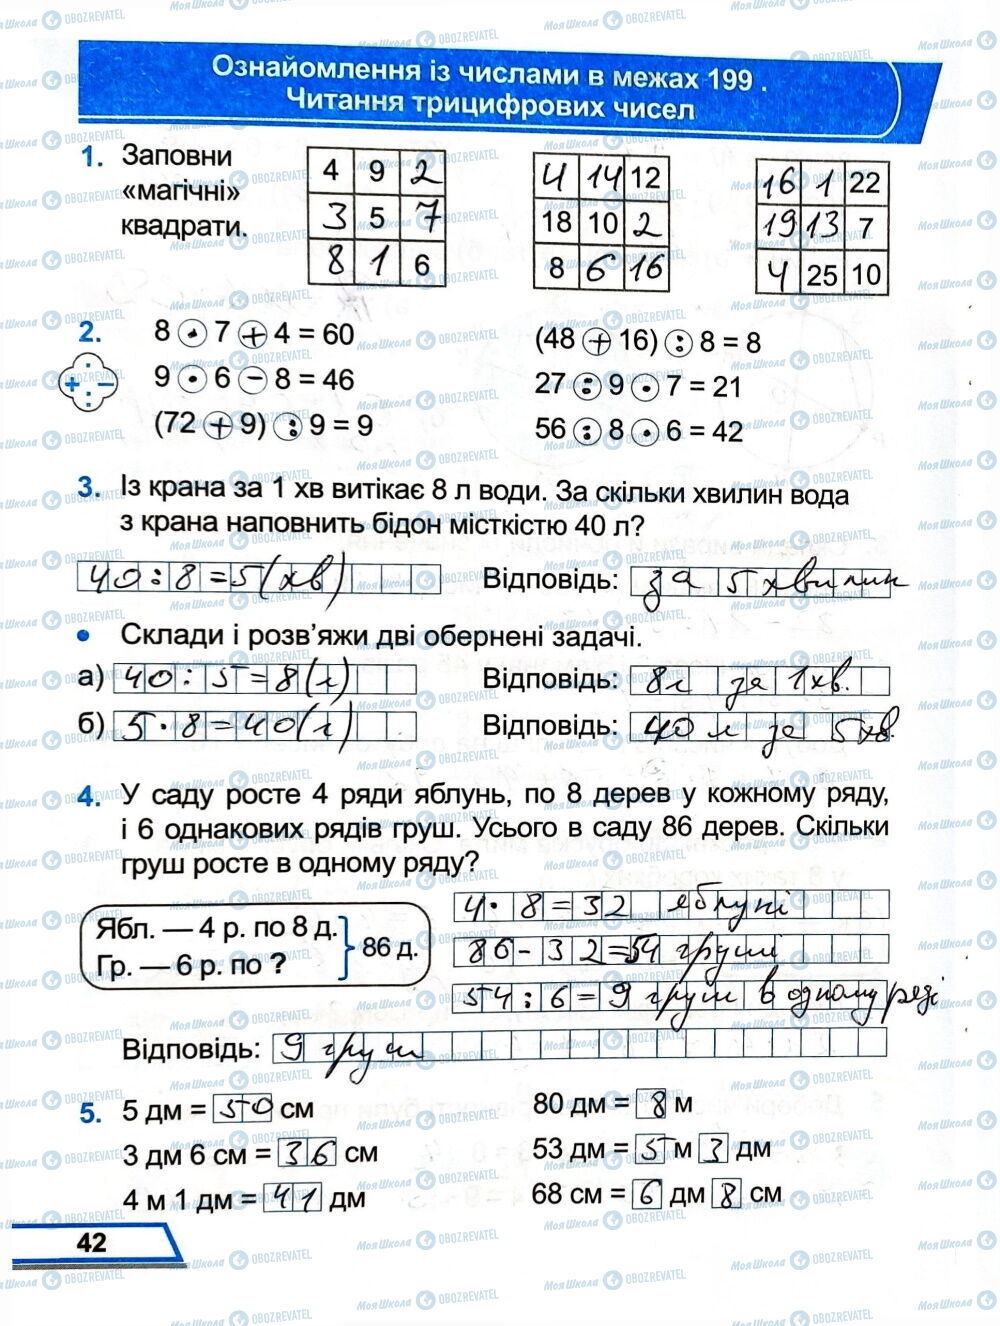 Ознайомлення із числами в межах 199 .
Читання трицифрових чисел
1. Заповни
«магічні»
квадрати.
4 9 2
3 5 7
8 1 6
4 14 12
18 10 2
8 6 16
16 1 22
19 13 7
4 25 10
2. 8 · 7 + 4 = 60
9 · 6 – 8 = 46
(72 + 9) : 9 = 9
(48 + 16) : 8 = 8
27 : 9 · 7 = 21
56 : 8 · 6 = 42
3. Із крана за 1 хв витікає 8 л води. За скільки хвилин вода
з крана наповнить бідон місткістю 40 л?
40 : 8 = 5 (хв) Відповідь: за 5 хвилин
• Склади і розв'яжи дві обернені задачі.
а) 40 : 5 = 8 (л) Відповідь: 8л за 1хв.
б) 5 · 8 = 40 (л) Відповідь: 40 л за 5хв.
4. У саду росте 4 ряди яблунь, по 8 дерев у кожному ряду,
і 6 однакових рядів груш. Усього в саду 86 дерев. Скільки
груш росте в одному ряду?
Ябл. — 4 р. по 8 д.
Гр. — 6 р. по ?
86 д.
4 · 8 = 32 яблуні
86 - 32 = 54 груші
54 : 6 = 9 груш в одному ряді
Відповідь: 9 груш
5. 5 дм = 50 см
3 дм 6 см = 36 см
4 м 1 дм = 41 дм
80 дм = 8 м
53 дм = 5 м 3 дм
68 см = 6 дм 8 см
42
МояШкола OBOZREVATEL